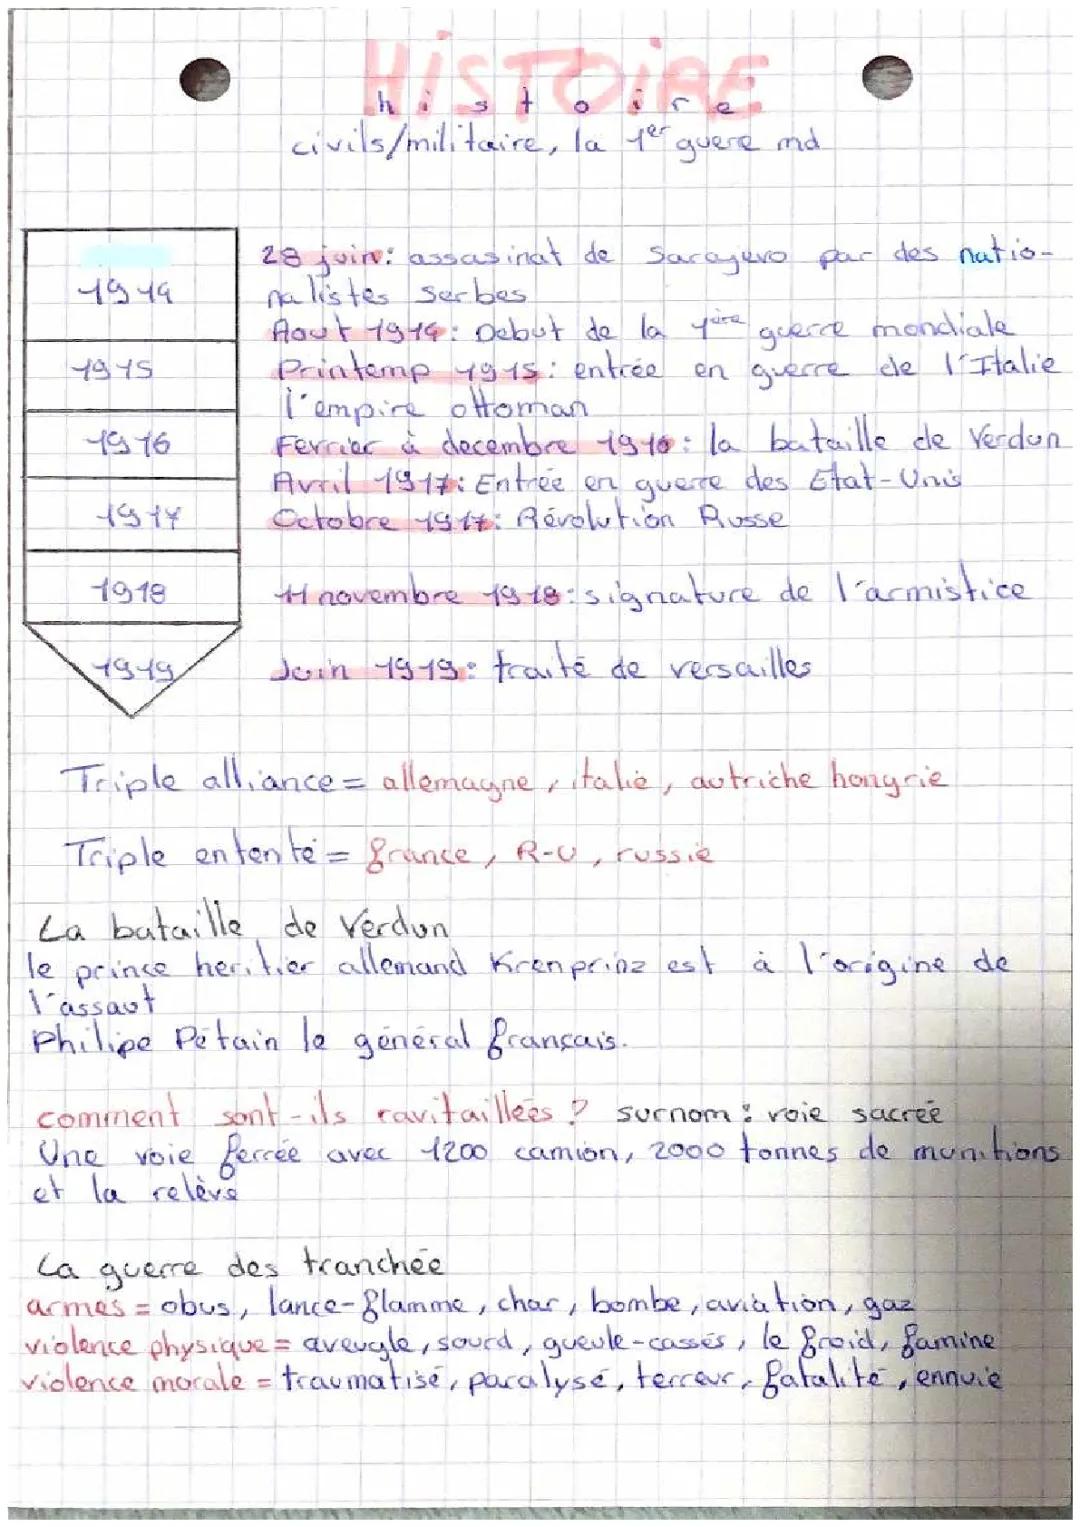 HiSTOiRE
histoire
civils/militaire, la 1er guere md
1914
28 juin: assasinat de Sarajevo par des natio-
nalistes serbes
Aout 1914: Debut de la 1ère guerre mondiale
1915
Printemp 1915: entrée en guerre de l'Italie
l'empire ottoman
1916
Fevrier à decembre 1916: la bataille de Verdun
Avril 1917: Entrée en guerre des Etat-Unis
1917
Octobre 1917: Révolution Russe
1918
11 novembre 1918: signature de l'armistice
1919
Juin 1919: traité de versailles
Triple alliance = allemagne, italie, autriche hongrie
Triple entente = france, R-U, russie
La bataille de Verdun
le prince heritier allemand Krenprinz est à l'origine de
l'assaut
Philipe Petain le général français.
comment sont-ils ravitaillées ? surnom: voie sacrée
Une voie ferrée avec 1200 camion, 2000 tonnes de munitions
et la relève
La guerre des tranchée
armes = obus, lance-flamme, char, bombe, aviation, gaz
violence physique = aveugle, sourd, gueule-cassés, le froid, famine
violence morale = traumatisé, paralysé, terreur, fatalité, ennuie